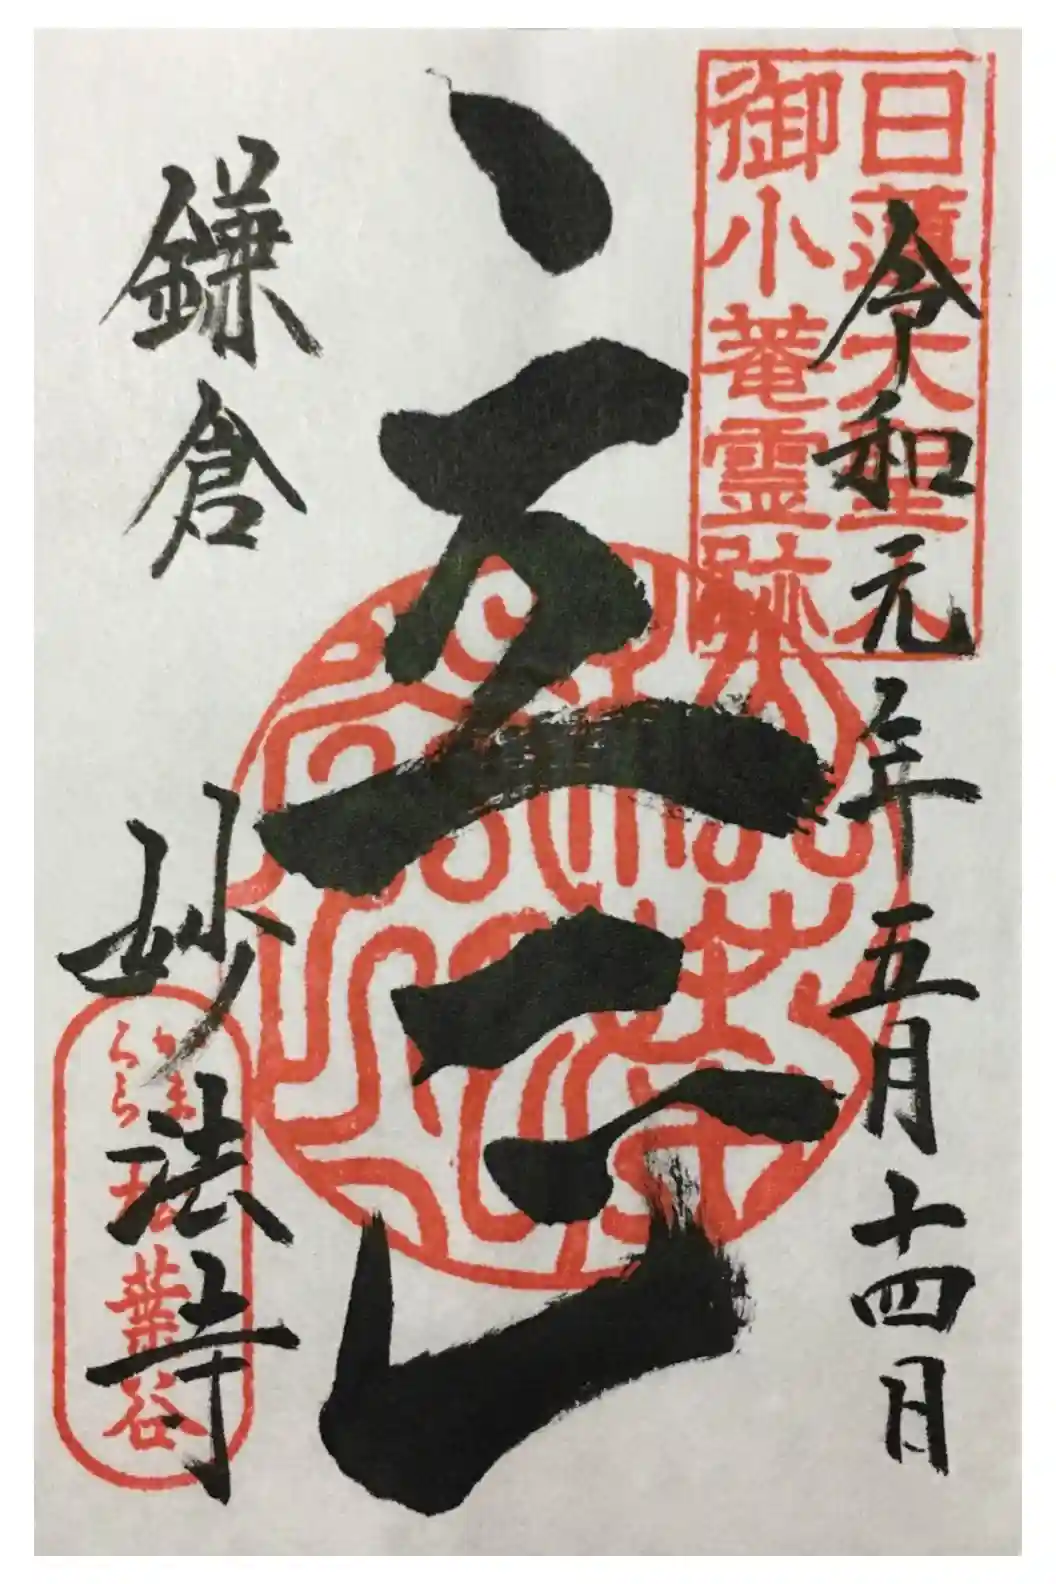 日蓮大聖人
御小菴霊跡
令和元年五月十四日
立正
鎌倉
妙法寺
かまくら
松葉谷